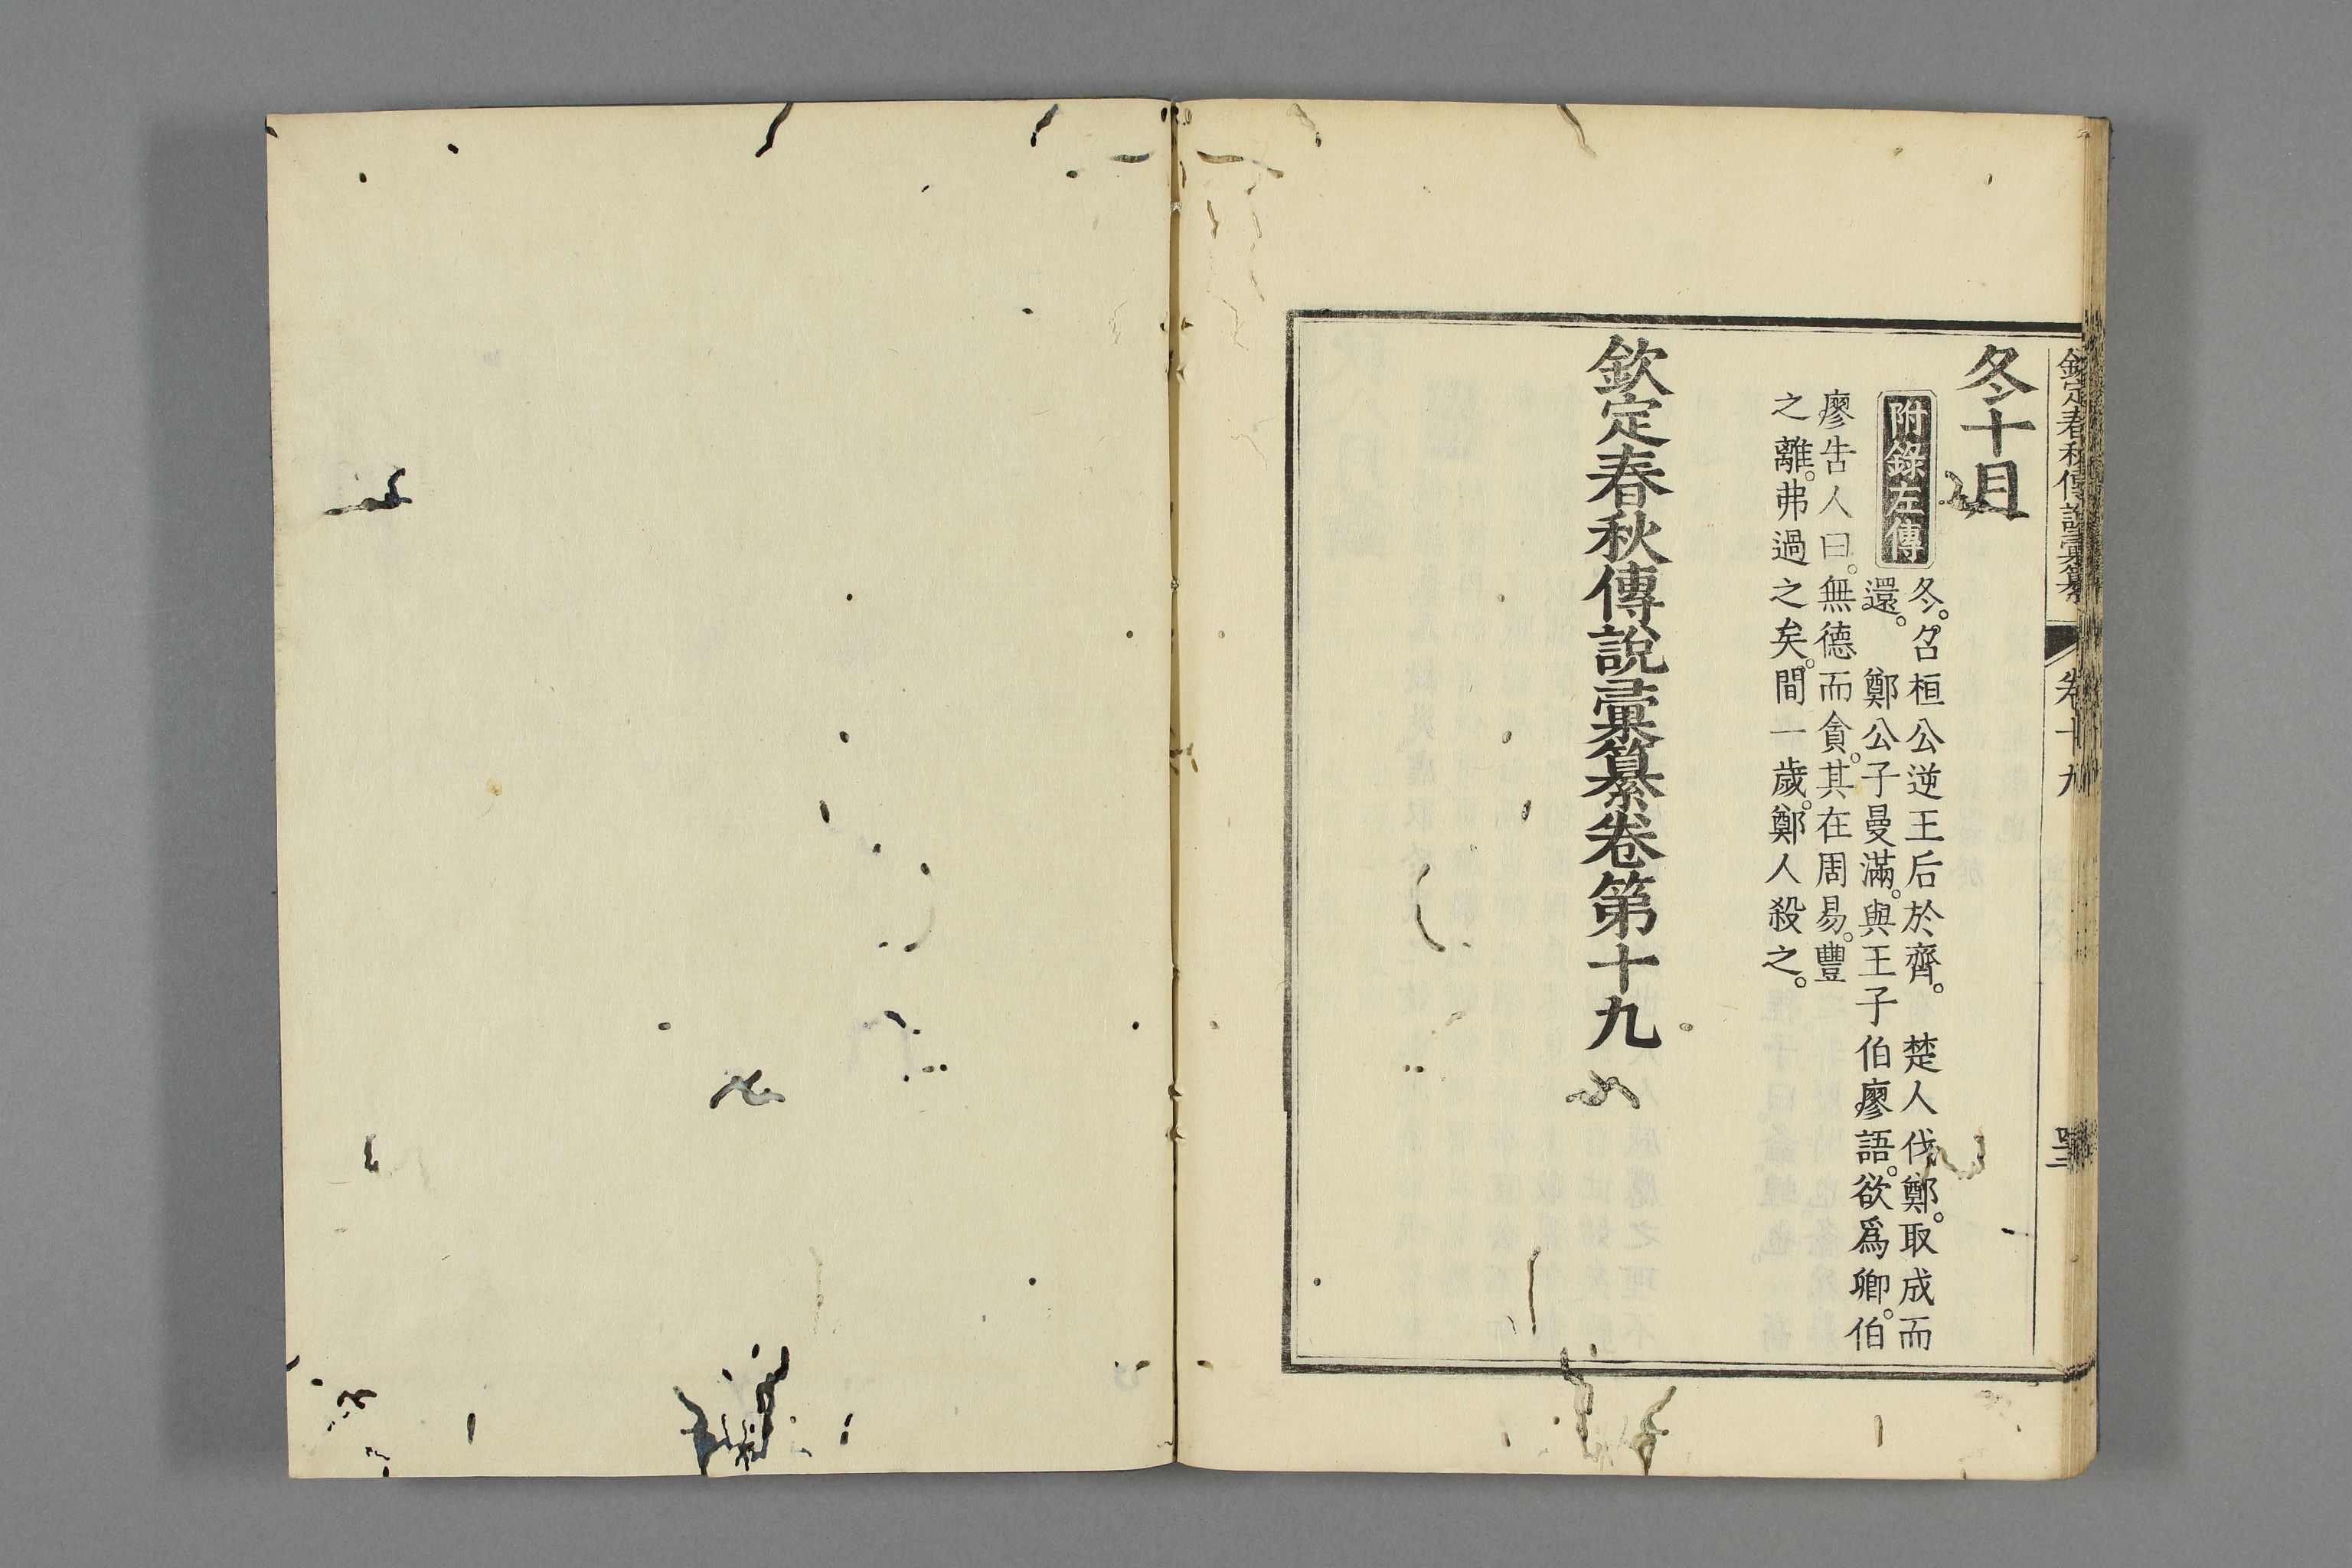 欽定春秋傳說彙纂 卷十九
冬十月
附錄左傳 冬。召桓公逆王后於齊。 楚人伐鄭。取成而
還。 鄭公子曼滿。與王子伯廖語。欲爲卿。伯
廖告人曰。無德而貪。其在周易。豐
之離。弗過之矣。間一歲。鄭人殺之。
欽定春秋傳說彙纂卷第十九